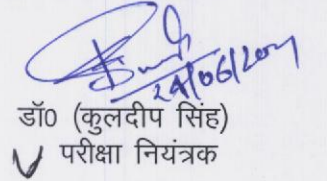 24/06/2021
डॉ0 (कुलदीप सिंह)
परीक्षा नियंत्रक